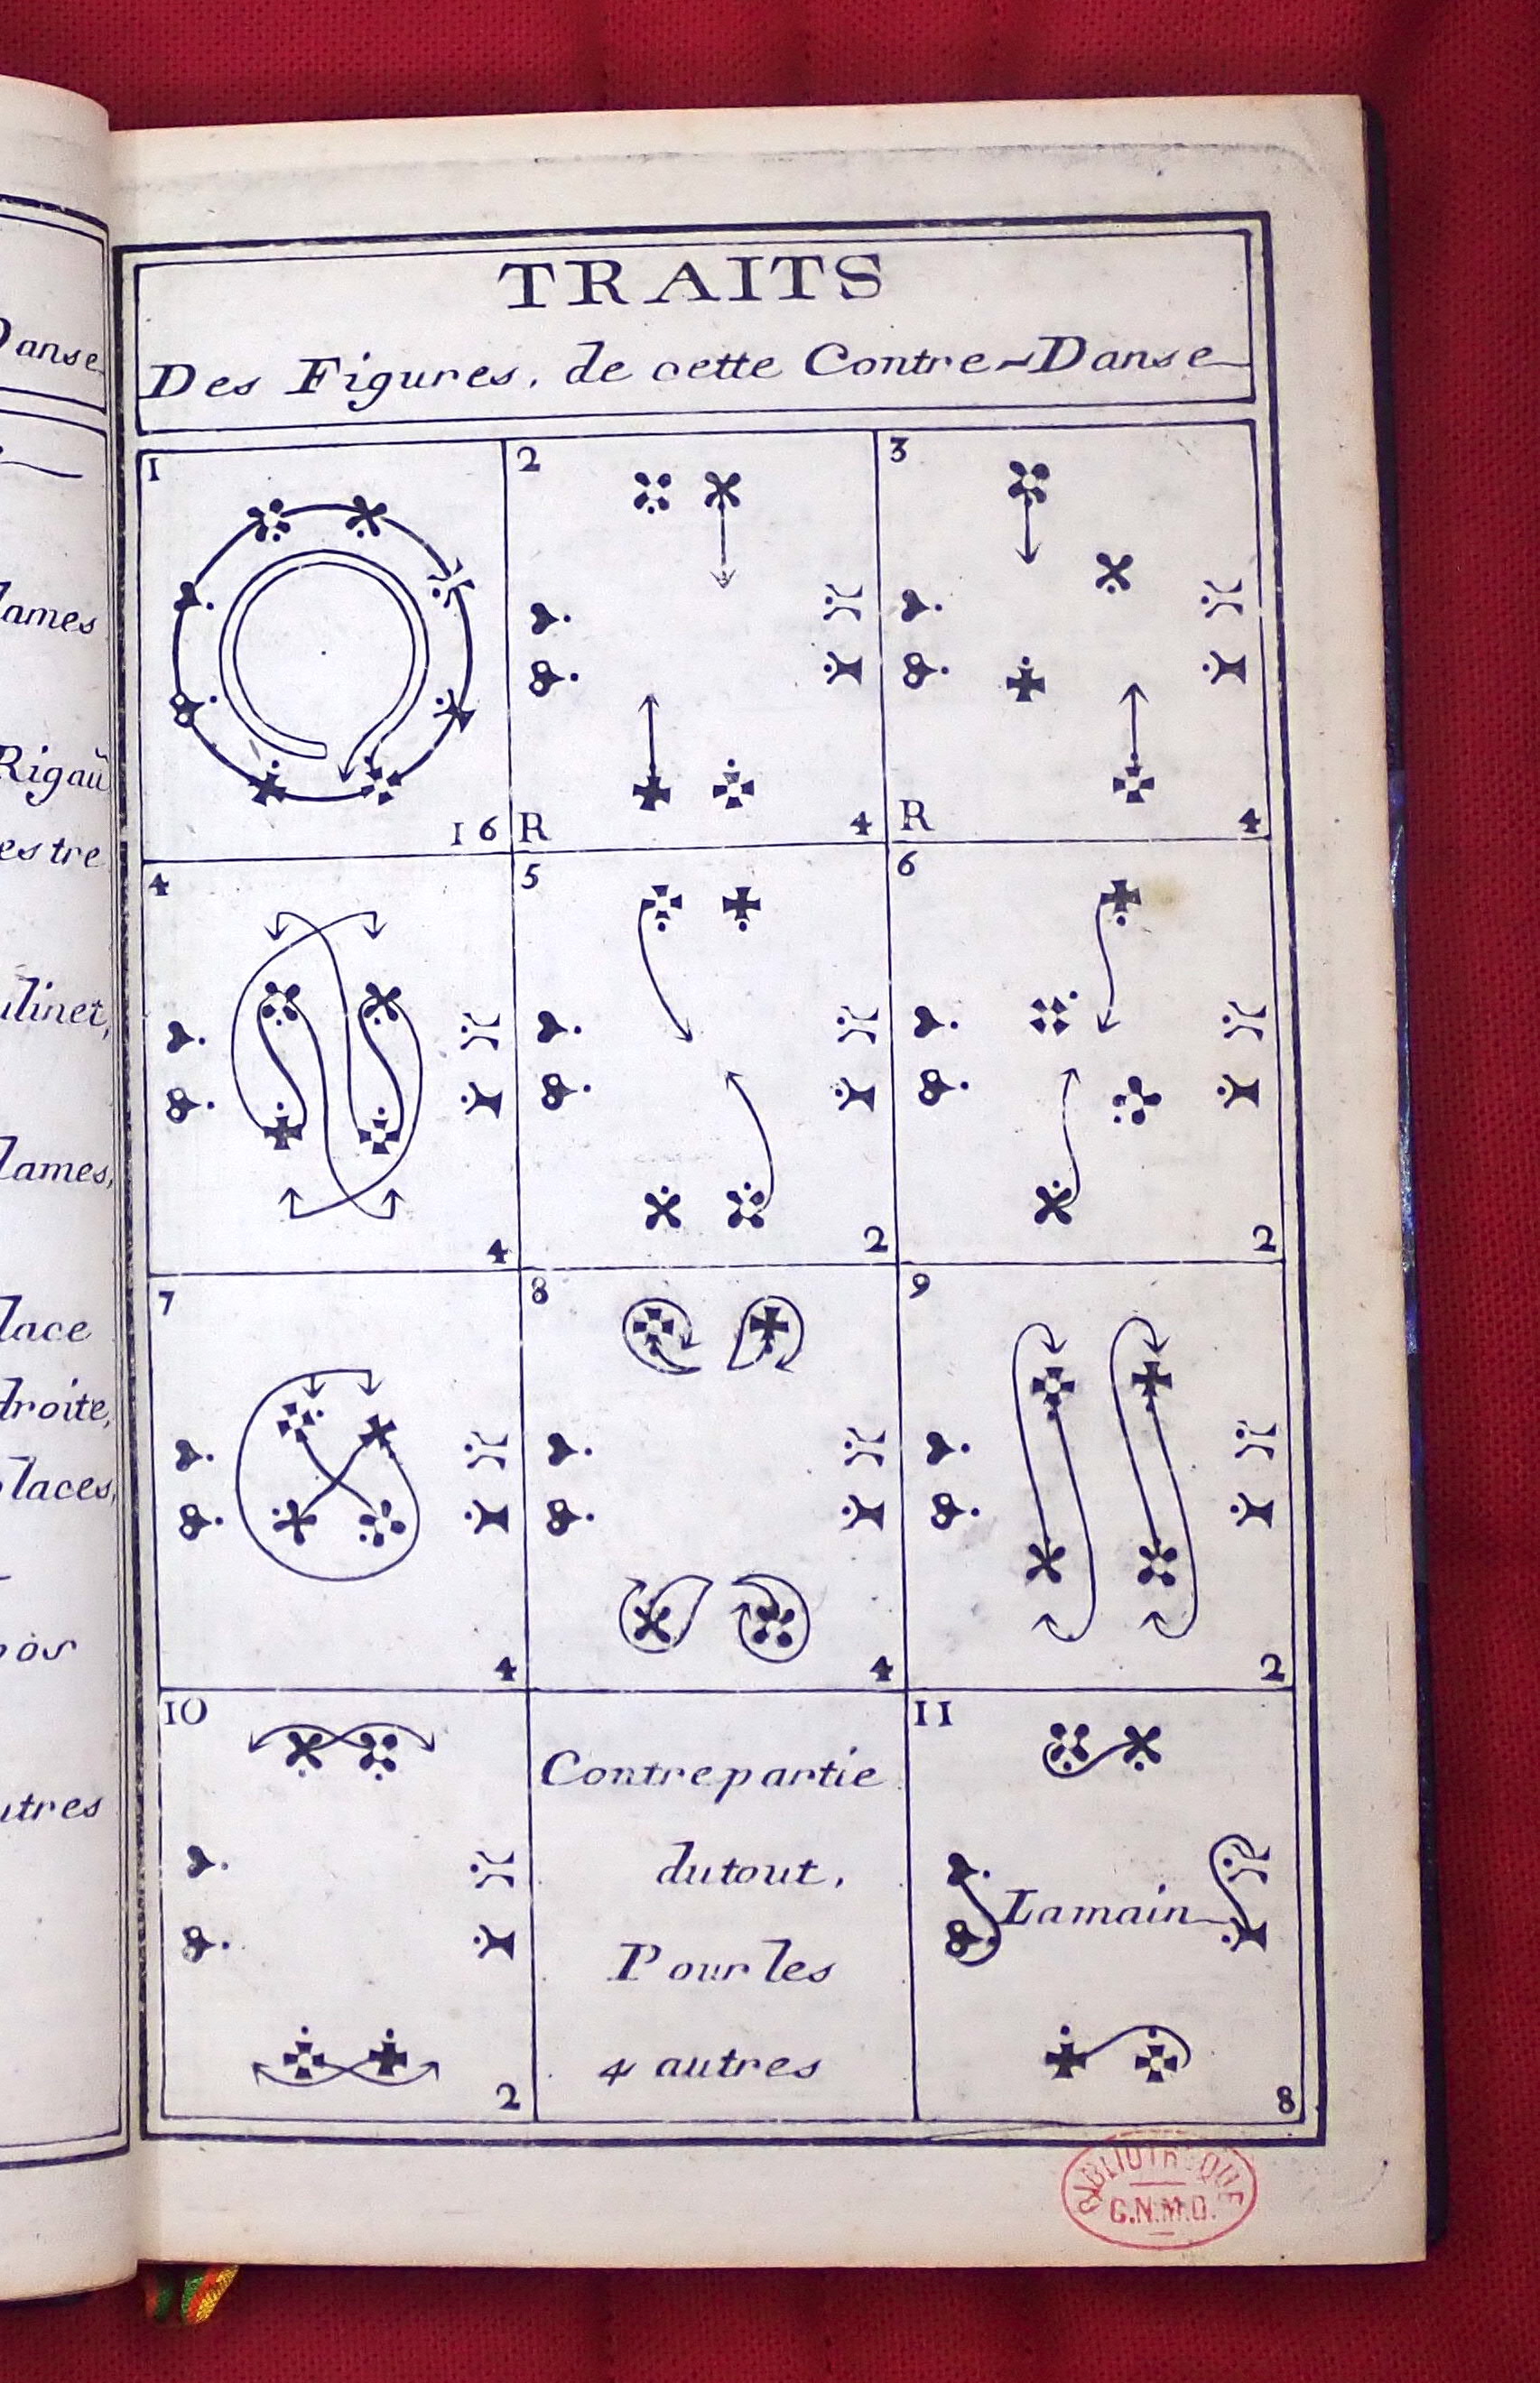 TRAITS
Des Figures, de cette Contre-Danse
1
16
2
R 4
3
R 4
4
4
5
2
6
2
7
4
8
4
9
2
10
2
Contrepartie
dutout,
Pour les
4 autres
11
Lamain
8
BIBLIOTHEQUE
C.N.M.D.
anse
ames
Rigaü
estre
ulinet,
lames,
lace
droite,
laces,
os
utres